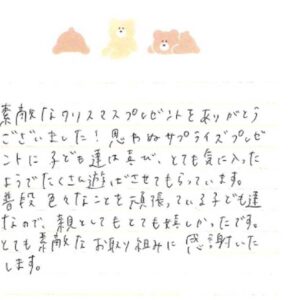 素敵なクリスマスプレゼントをありがとう
ございました！思わぬサプライズプレゼ
ントに子ども達は喜び、とても気に入った
ようでたくさん遊ばさせてもらっています。
普段色々なことを頑張っている子ども達
なので、親としてもとても嬉しかったです。
とても素敵なお取り組みに感謝いた
します。